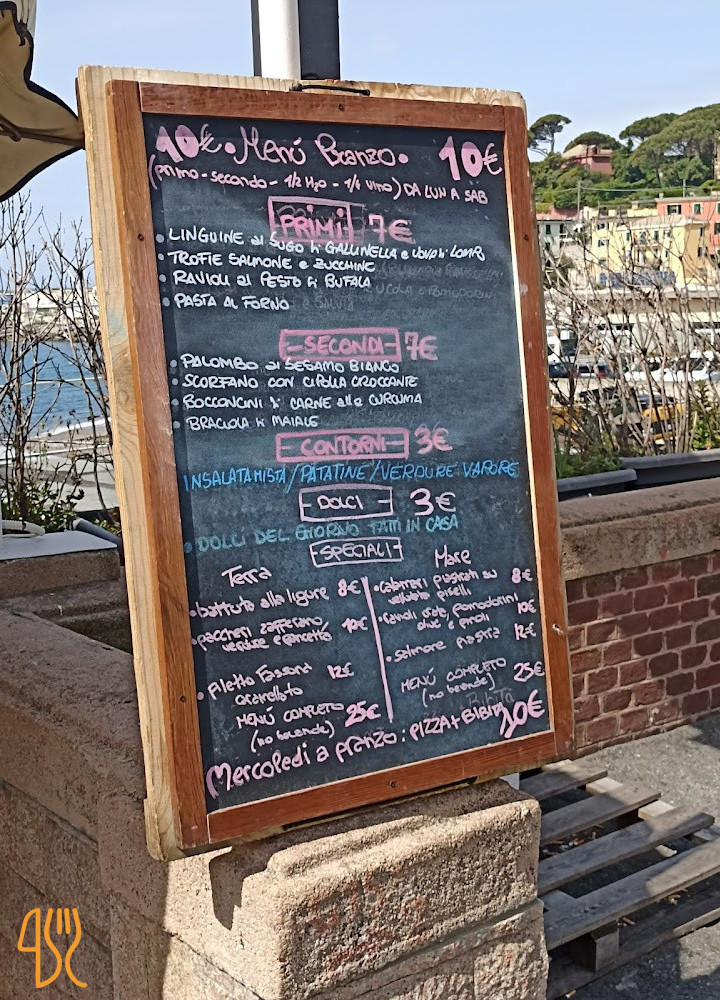 10€ • Menú Pranzo • 10€
(primo - secondo - 1/2 H2O - 1/4 vino) DA LUN A SAB
PRIMI 7€
• LINGUINE al SUGO di GALLINELLA e UOVA di LOMPO
• TROFIE SALMONE e ZUCCHINE
• RAVIOLI al PESTO di BUFALA
• PASTA AL FORNO
- SECONDI - 7€
• PALOMBO al SESAMO BIANCO
• SCORFANO CON CIPOLLA CROCCANTE
• BOCCONCINI di CARNE alla CURCUMA
• BRACIOLA di MAIALE
- CONTORNI - 3€
INSALATA MISTA / PATATINE / VERDURE VAPORE
- DOLCI - 3€
• DOLCI DEL GIORNO FATTI IN CASA
- SPECIALI -
Terra
• battuta alla ligure 8€
• paccheri zafferano, verdure e pancetta 10€
• Filetto Fassona 12€
MENÚ COMPLETO 25€
(no bevande)
Mare
• calamari piastrati su 8€
vellutata piselli
• ravioli orate, pomodorini 10€
olive e pinoli
• salmone piastra 12€
MENÚ COMPLETO 25€
(no bevande)
Mercoledi a pranzo : PIZZA + BIBITA 10€